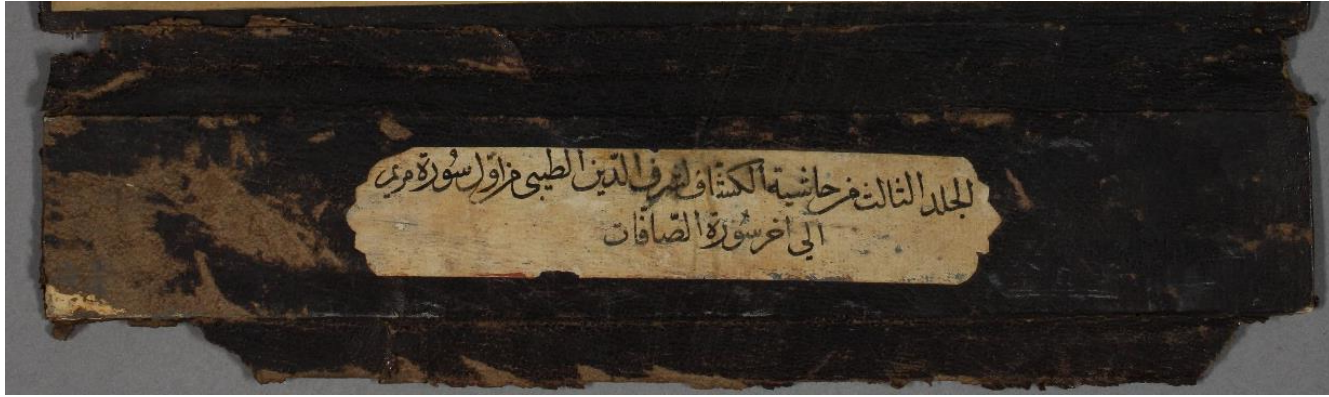 الجلد الثالث من حاشية الكشاف لشرف الدين الطيبى من اول سورة مريم
الى اخر سورة الصافات